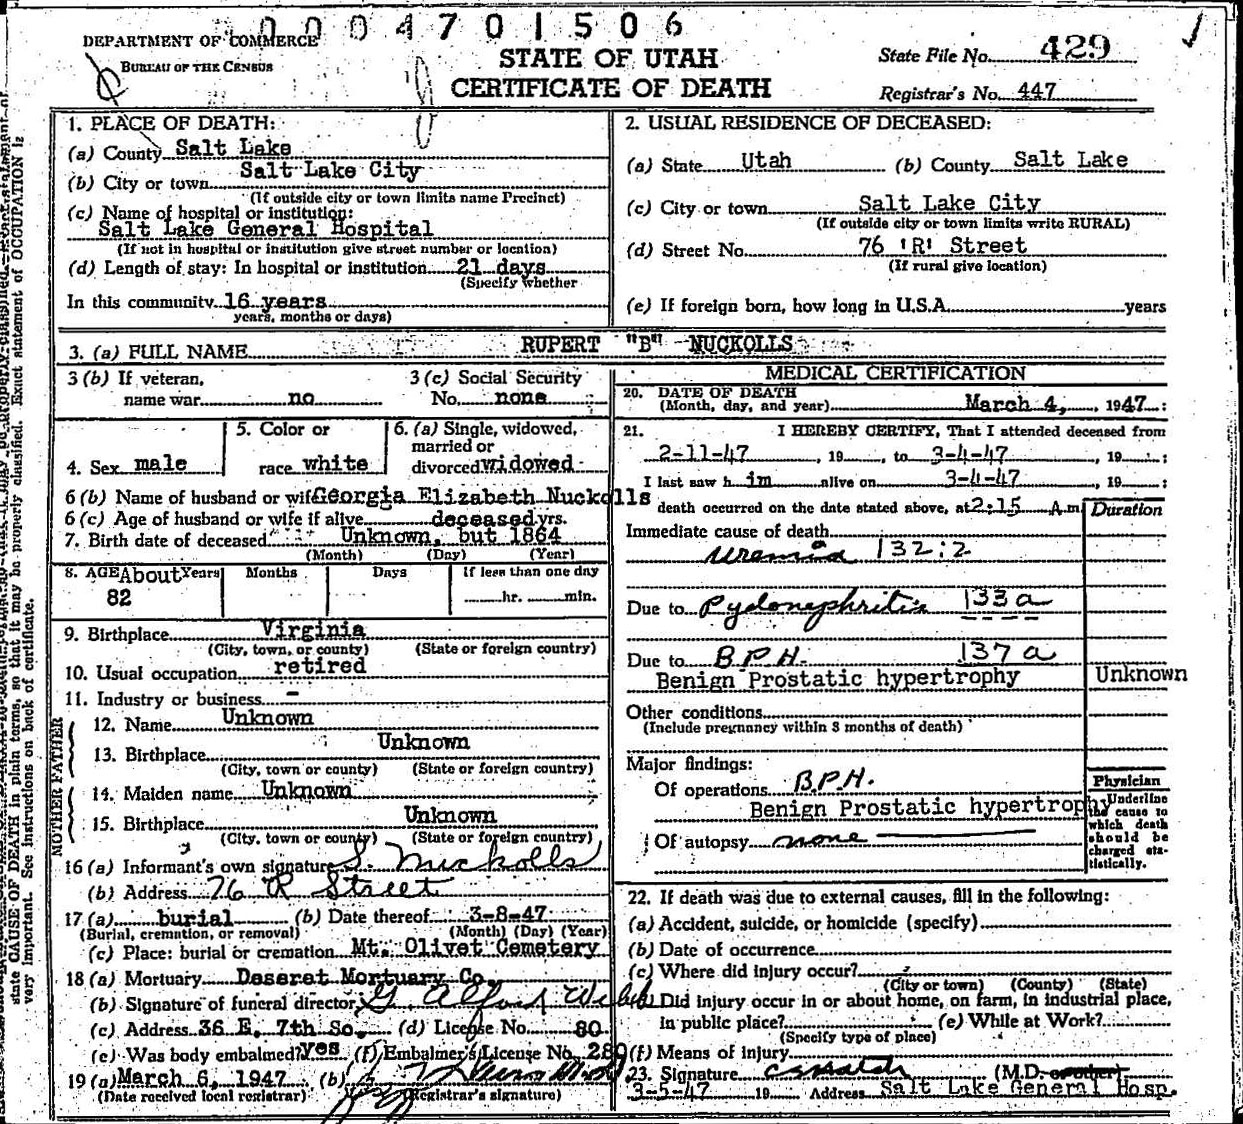 0004701506
DEPARTMENT OF COMMERCE
BUREAU OF THE CENSUS
STATE OF UTAH
CERTIFICATE OF DEATH
State File No. 429
Registrar's No. 447
1. PLACE OF DEATH:
(a) County Salt Lake
(b) City or town Salt Lake City
(If outside city or town limits name Precinct)
(c) Name of hospital or institution:
Salt Lake General Hospital
(If not in hospital or institution give street number or location)
(d) Length of stay: In hospital or institution 21 days
(Specify whether
In this community 16 years
years, months or days)
2. USUAL RESIDENCE OF DECEASED:
(a) State Utah (b) County Salt Lake
(c) City or town Salt Lake City
(If outside city or town limits write RURAL)
(d) Street No. 76 'R' Street
(If rural give location)
(e) If foreign born, how long in U.S.A. years
3. (a) FULL NAME RUPERT "B" NUCKOLLS
3 (b) If veteran, name war no
3 (c) Social Security No. none
4. Sex male
5. Color or race white
6. (a) Single, widowed, married or divorced widowed
6 (b) Name of husband or wife Georgia Elizabeth Nuckolls
6 (c) Age of husband or wife if alive deceased yrs.
7. Birth date of deceased Unknown, but 1864
(Month) (Day) (Year)
8. AGE About Years Months Days If less than one day
82 hr. min.
9. Birthplace Virginia
(City, town, or county) (State or foreign country)
10. Usual occupation retired
11. Industry or business -
FATHER
12. Name Unknown
13. Birthplace Unknown
(City, town or county) (State or foreign country)
MOTHER
14. Maiden name Unknown
15. Birthplace Unknown
(City, town or county) (State or foreign country)
16 (a) Informant's own signature S. Nuckolls
(b) Address 76 R Street
17 (a) burial (b) Date thereof 3-8-47
(Burial, cremation, or removal) (Month) (Day) (Year)
(c) Place: burial or cremation Mt. Olivet Cemetery
18 (a) Mortuary Deseret Mortuary Co.
(b) Signature of funeral director
(c) Address 36 E. 7th So. (d) License No. 80
(e) Was body embalmed? yes (f) Embalmer's License No. 280
19 (a) March 6, 1947 (b)
(Date received local registrar) (Registrar's signature)
MEDICAL CERTIFICATION
20. DATE OF DEATH
(Month, day, and year) March 4, 1947
21. I HEREBY CERTIFY, That I attended deceased from
2-11-47, 19 , to 3-4-47, 19 ;
I last saw him alive on 3-4-47, 19 ;
death occurred on the date stated above, at 2:15 A.m
Duration
Immediate cause of death
uremia 132:2
Due to Pyelonephritis 133a
Due to B.P.H. 137a
Benign Prostatic hypertrophy Unknown
Other conditions
(Include pregnancy within 3 months of death)
Major findings:
Of operations B.P.H.
Benign Prostatic hypertrophy
Of autopsy none
Physician
Underline the cause to which death should be charged statistically.
22. If death was due to external causes, fill in the following:
(a) Accident, suicide, or homicide (specify)
(b) Date of occurrence
(c) Where did injury occur?
(City or town) (County) (State)
Did injury occur in or about home, on farm, in industrial place,
in public place? (e) While at Work?
(Specify type of place)
(f) Means of injury
23. Signature (M.D. or other)
3-5-47 19 Address Salt Lake General Hosp.
state CAUSE OF DEATH in plain terms, so that it may be properly classified. Exact statement of OCCUPATION is
very important. See instructions on back of certificate.